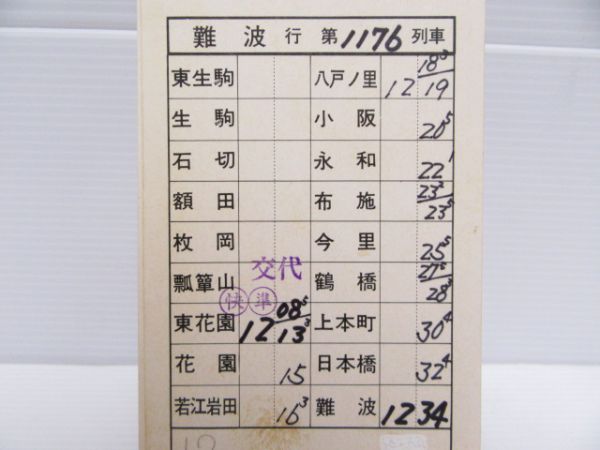 難波 行 第 1176 列車
東生駒 八戸ノ里 12 18³/19
生駒 小阪 20⁵
石切 永和 22¹
額田 布施 23²/23⁵
枚岡 今里 25⁵
交代
瓢簞山 鶴橋 27⁵/28³
快 準
東花園 12 08⁵/13³ 上本町 30⁴
花園 15 日本橋 32⁴
若江岩田 16³ 難波 12 34